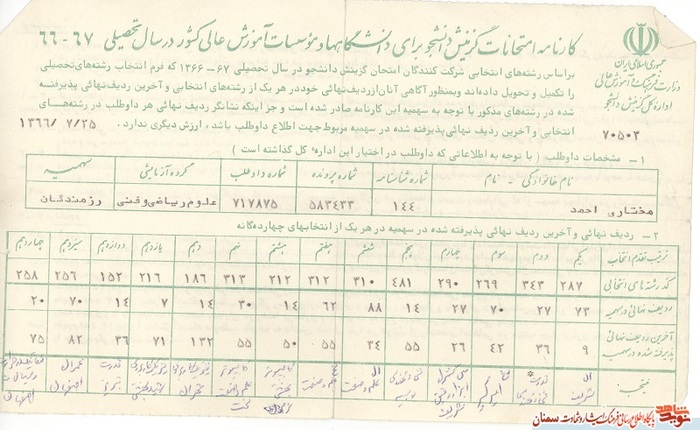 کارنامه امتحانات گزینش دانشجو برای دانشگاهها و مؤسسات آموزش عالی کشور در سال تحصیلی ۶۷ - ۶۶
جمهوری اسلامی ایران
وزارت فرهنگ و آموزش عالی
اداره کل گزینش دانشجو
۷۰۵۰۳
۱۳۶۶/۷/۲۵
براساس رشته‌های انتخابی شرکت کنندگان امتحان گزینش دانشجو در سال تحصیلی ۶۷-۱۳۶۶ که فرم انتخاب رشته‌های تحصیلی
را تکمیل و تحویل داده‌اند وبمنظور آگاهی آنان از ردیف نهائی خود در هر یک از رشته‌های انتخابی و آخرین ردیف نهائی پذیرفته
شده در رشته‌های مذکور با توجه به سهمیه این کارنامه صادر شده است و جز اینکه نشانگر ردیف نهائی هر داوطلب در رشته‌های
انتخابی و آخرین ردیف نهائی پذیرفته شده در سهمیه مربوط جهت اطلاع داوطلب باشد ، ارزش دیگری ندارد .
۱- مشخصات داوطلب ( با توجه به اطلاعاتی که داوطلب در اختیار این اداره کل گذاشته است )
نام خانوادگی - نام شماره شناسنامه شماره پرونده شماره داوطلب گروه آزمایشی سهمیه
مختاری احمد ۱۴۴ ۵۸۳۴۳۳ ۷۱۷۸۷۵ علوم ریاضی وفنی رزمندگان
۲- ردیف نهائی و آخرین ردیف نهائی پذیرفته شده در سهمیه در هر یک از انتخابهای چهارده‌گانه
ترتیب تقدم انتخاب یکم دوم سوم چهارم پنجم ششم هفتم هشتم نهم دهم یازدهم دوازدهم سیزدهم چهاردهم
کد رشته‌های انتخابی ۲۸۷ ۳۴۳ ۲۶۹ ۲۹۰ ۴۸۱ ۳۱۰ ۳۱۲ ۲۱۲ ۳۱۳ ۱۸۶ ۲۱۶ ۱۵۲ ۲۵۶ ۲۵۸
ردیف نهائی در سهمیه ۷۳ ۲۷ ۷۰ ۲۷ ۱۴ ۸۸ ۶۲ ۱۴ ۳۰ ۱۴ ۷ ۱۴ ۷۰ ۲۰
آخرین ردیف نهائی پذیرفته شده در سهمیه ۹ ۳۶ ۴۲ ۲۶ ۵۵ ۳۴ ۵۵ ۵۰ ۵۵ ۱۳۲ ۷۱ ۳۶ ۸۲ ۷۵
پایگاه اطلاع رسانی فرهنگ ایثار و شهادت سمنان
نوید شاهد